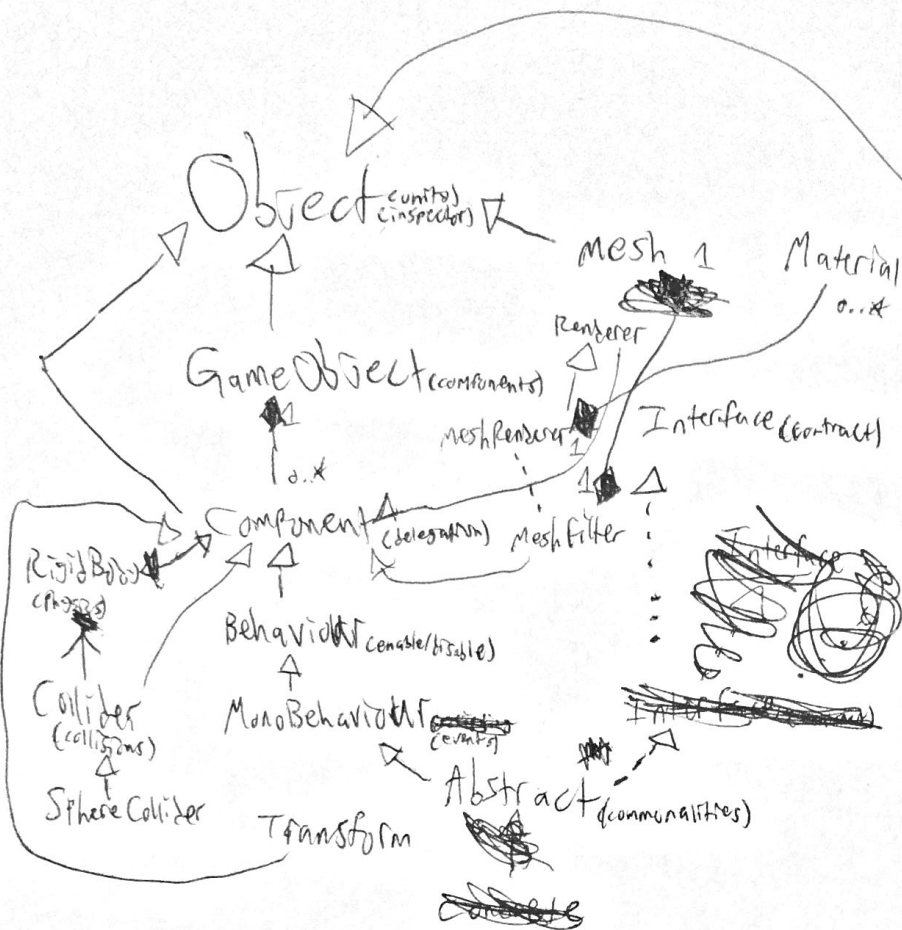 Object (unity)
(inspector)
Mesh 1
Material
0..*
Renderer
GameObject (components)
1
MeshRenderer 1
Interface (contract)
0..*
1
Component
(delegation)
MeshFilter
RigidBody
(Physics)
Interface
Behaviour (enable/disable)
Collider
(collisions)
MonoBehaviour
(events)
Abstract
(commonalities)
SphereCollider
Transform
Concrete